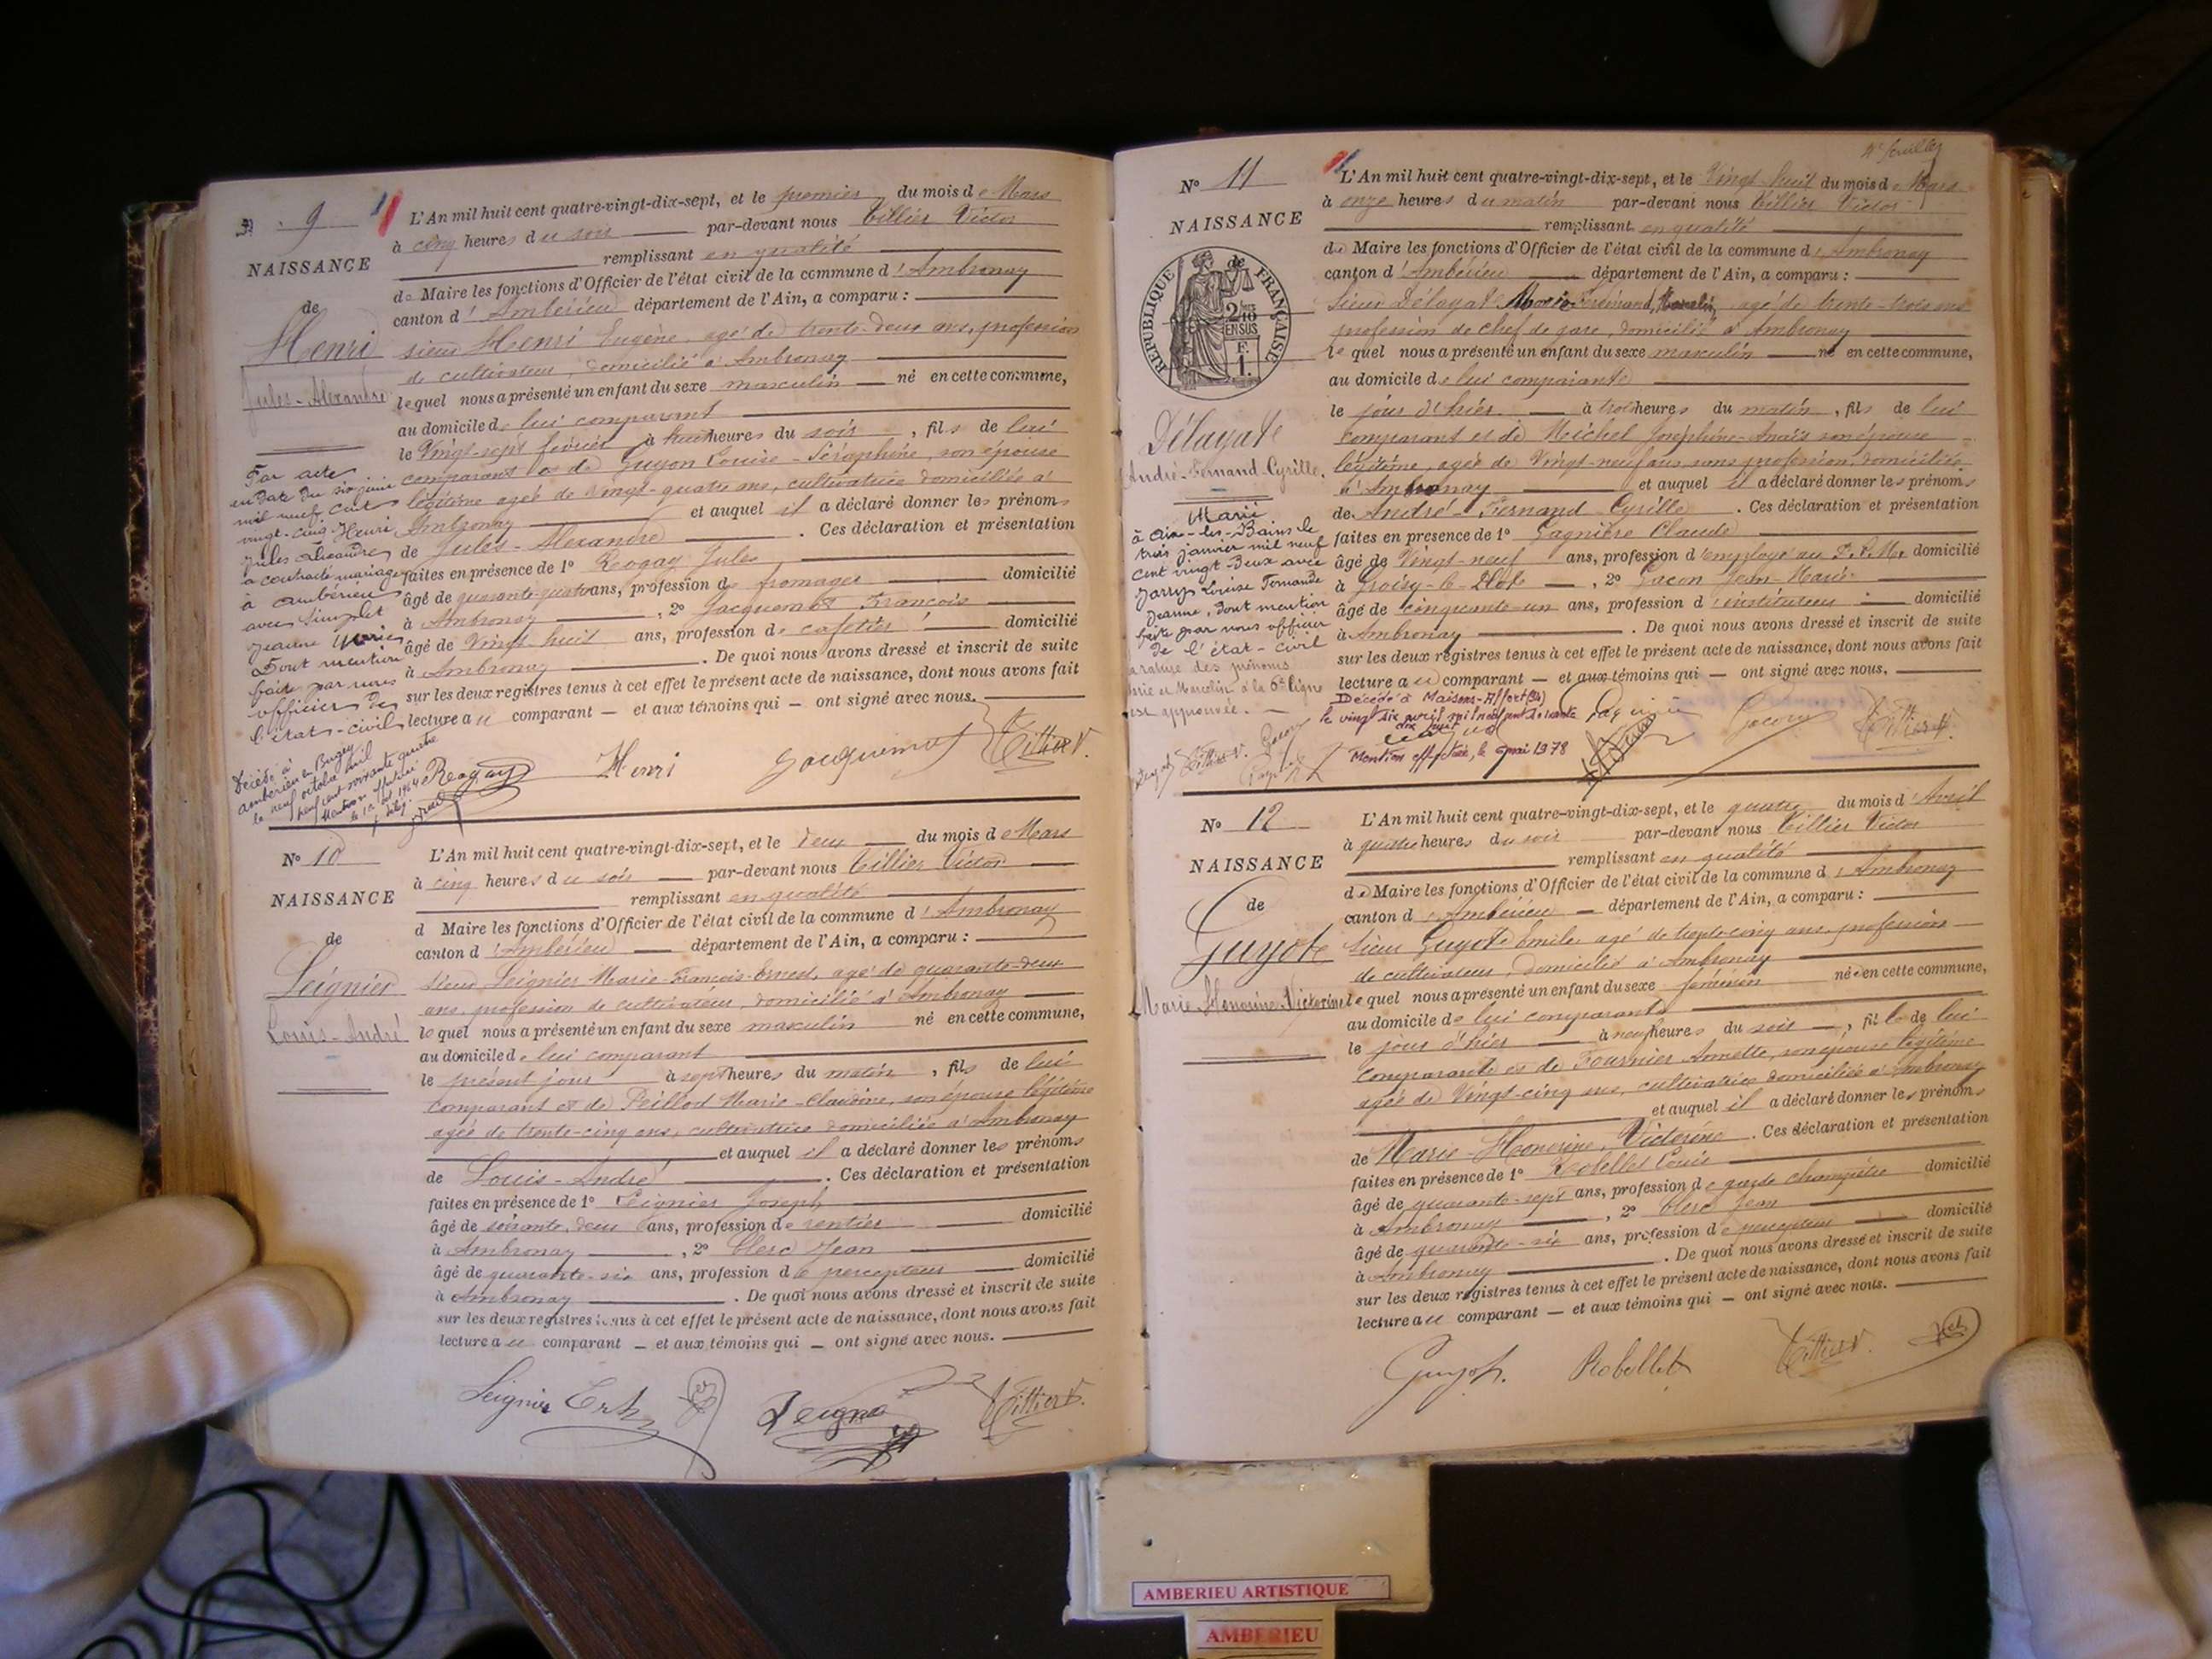 N° 9
NAISSANCE
de
Henri
Jules-Alexandre
Par acte
en date du six juin
mil neuf cent
vingt-cinq Henri
Jules Alexandre
a contracté mariage
à Ambérieu
avec
Jeanne Marie
Dont mention
faite par nous
officier de
l'état-civil
Décédé à
Ambérieu en Bugey
le neuf octobre mil
neuf cent soixante quatre
L'An mil huit cent quatre-vingt-dix-sept, et le premier du mois de Mars
à cinq heures du soir par-devant nous Tillier Victor
remplissant en qualité
de Maire les fonctions d'Officier de l'état civil de la commune d'Ambronay
canton d'Ambérieu département de l'Ain, a comparu :
sieur Henri Eugène, agé de trente-deux ans, profession
de cultivateur, domicilié à Ambronay
lequel nous a présenté un enfant du sexe masculin né en cette commune,
au domicile de lui comparant
le Vingt-sept février à huit heures du soir, fils de lui
comparant et de Guyon Louise-Séraphine, son épouse
légitime agée de vingt-quatre ans, cultivatrice domiciliée à
Ambronay et auquel il a déclaré donner les prénoms
de Jules-Alexandre. Ces déclaration et présentation
faites en présence de 1° Reogay Jules
âgé de quarante-quatre ans, profession de fromager domicilié
à Ambronay, 2° Jacquemot François
âgé de Vingt huit ans, profession de cafetier domicilié
à Ambronay. De quoi nous avons dressé et inscrit de suite
sur les deux registres tenus à cet effet le présent acte de naissance, dont nous avons fait
lecture au comparant — et aux témoins qui — ont signé avec nous.
Reogay Henri Jacquemot Tillier V.
N° 10
NAISSANCE
de
Leignier
Louis-André
L'An mil huit cent quatre-vingt-dix-sept, et le deux du mois de Mars
à cinq heures du soir par-devant nous Tillier Victor
remplissant en qualité
d Maire les fonctions d'Officier de l'état civil de la commune d'Ambronay
canton d'Ambérieu département de l'Ain, a comparu :
sieur Leignier Marie-François-Ernest, agé de quarante-deux
ans, profession de cultivateur, domicilié à Ambronay
lequel nous a présenté un enfant du sexe masculin né en cette commune,
au domicile de lui comparant
le présent jour à sept heures du matin, fils de lui
comparant et de Pillod Marie-Claudine, son épouse légitime
agée de trente-cinq ans, cultivatrice domiciliée à Ambronay
et auquel il a déclaré donner les prénoms
de Louis-André. Ces déclaration et présentation
faites en présence de 1° Leignier Joseph
âgé de soixante, deux ans, profession de rentier domicilié
à Ambronay, 2° Clerc Jean
âgé de quarante-six ans, profession de percepteur domicilié
à Ambronay. De quoi nous avons dressé et inscrit de suite
sur les deux registres tenus à cet effet le présent acte de naissance, dont nous avons fait
lecture au comparant — et aux témoins qui — ont signé avec nous.
Leignier Tillier V.
4e feuillet
N° 11
NAISSANCE
de
REPUBLIQUE FRANÇAISE
Délayat
André-Fernand-Cyrille.
Marié
à Aix-les-Bains le
trois janvier mil neuf
cent vingt-deux avec
Jarrys Louise Fernande
Jeanne, dont mention
faite par nous officier
de l'état-civil
La rature des prénoms
Marie et Marcelin à la 6e ligne
est approuvée.
L'An mil huit cent quatre-vingt-dix-sept, et le Vingt-huit du mois de Mars
à onze heures du matin par-devant nous Tillier Victor
remplissant en qualité
de Maire les fonctions d'Officier de l'état civil de la commune d'Ambronay
canton d'Ambérieu département de l'Ain, a comparu :
sieur Délayat Marie Ferdinand, Marcelin, agé de trente-trois ans
profession de chef de gare, domicilié à Ambronay
lequel nous a présenté un enfant du sexe masculin né en cette commune,
au domicile de lui comparant
le jour d'hier à trois heures du matin, fils de lui
comparant et de Meichel Joséphine-Anaïs son épouse
légitime, agée de Vingt-neuf ans, sans profession, domiciliée
à Ambronay et auquel il a déclaré donner les prénoms
de André-Fernand-Cyrille. Ces déclaration et présentation
faites en présence de 1° Gagnière Claude
âgé de Vingt-neuf ans, profession d'employé au P.L.M. domicilié
à Groisy-le-Plot, 2° Gacon Jean-Marie
âgé de cinquante-un ans, profession d'instituteur domicilié
à Ambronay. De quoi nous avons dressé et inscrit de suite
sur les deux registres tenus à cet effet le présent acte de naissance, dont nous avons fait
lecture au comparant — et aux témoins qui — ont signé avec nous.
Décédé à Maisons-Alfort (94)
le vingt six avril mil neuf cent soixante
dix huit
Mention effectuée, le mai 1978
Gacon Tillier V.
N° 12
NAISSANCE
de
Guyot
Marie-Honorine-Victorine
L'An mil huit cent quatre-vingt-dix-sept, et le quatre du mois d'Avril
à quatre heures du soir par-devant nous Tillier Victor
remplissant en qualité
de Maire les fonctions d'Officier de l'état civil de la commune d'Ambronay
canton d'Ambérieu département de l'Ain, a comparu :
sieur Guyot Emile, agé de trente-cinq ans, profession
de cultivateur, domicilié à Ambronay
lequel nous a présenté un enfant du sexe féminin née en cette commune,
au domicile de lui comparant
le jour d'hier à neuf heures du soir, fille de lui
comparant et de Fournier Annette, son épouse légitime
agée de Vingt-cinq ans, cultivatrice domiciliée à Ambronay
et auquel il a déclaré donner les prénoms
de Marie-Honorine, Victorine. Ces déclaration et présentation
faites en présence de 1° Robellet Louis
âgé de quarante-sept ans, profession de garde champêtre domicilié
à Ambronay, 2° Clerc Jean
âgé de quarante-six ans, profession de percepteur domicilié
à Ambronay. De quoi nous avons dressé et inscrit de suite
sur les deux registres tenus à cet effet le présent acte de naissance, dont nous avons fait
lecture au comparant — et aux témoins qui — ont signé avec nous.
Guyot. Robellet Tillier V.
AMBERIEU ARTISTIQUE
AMBERIEU